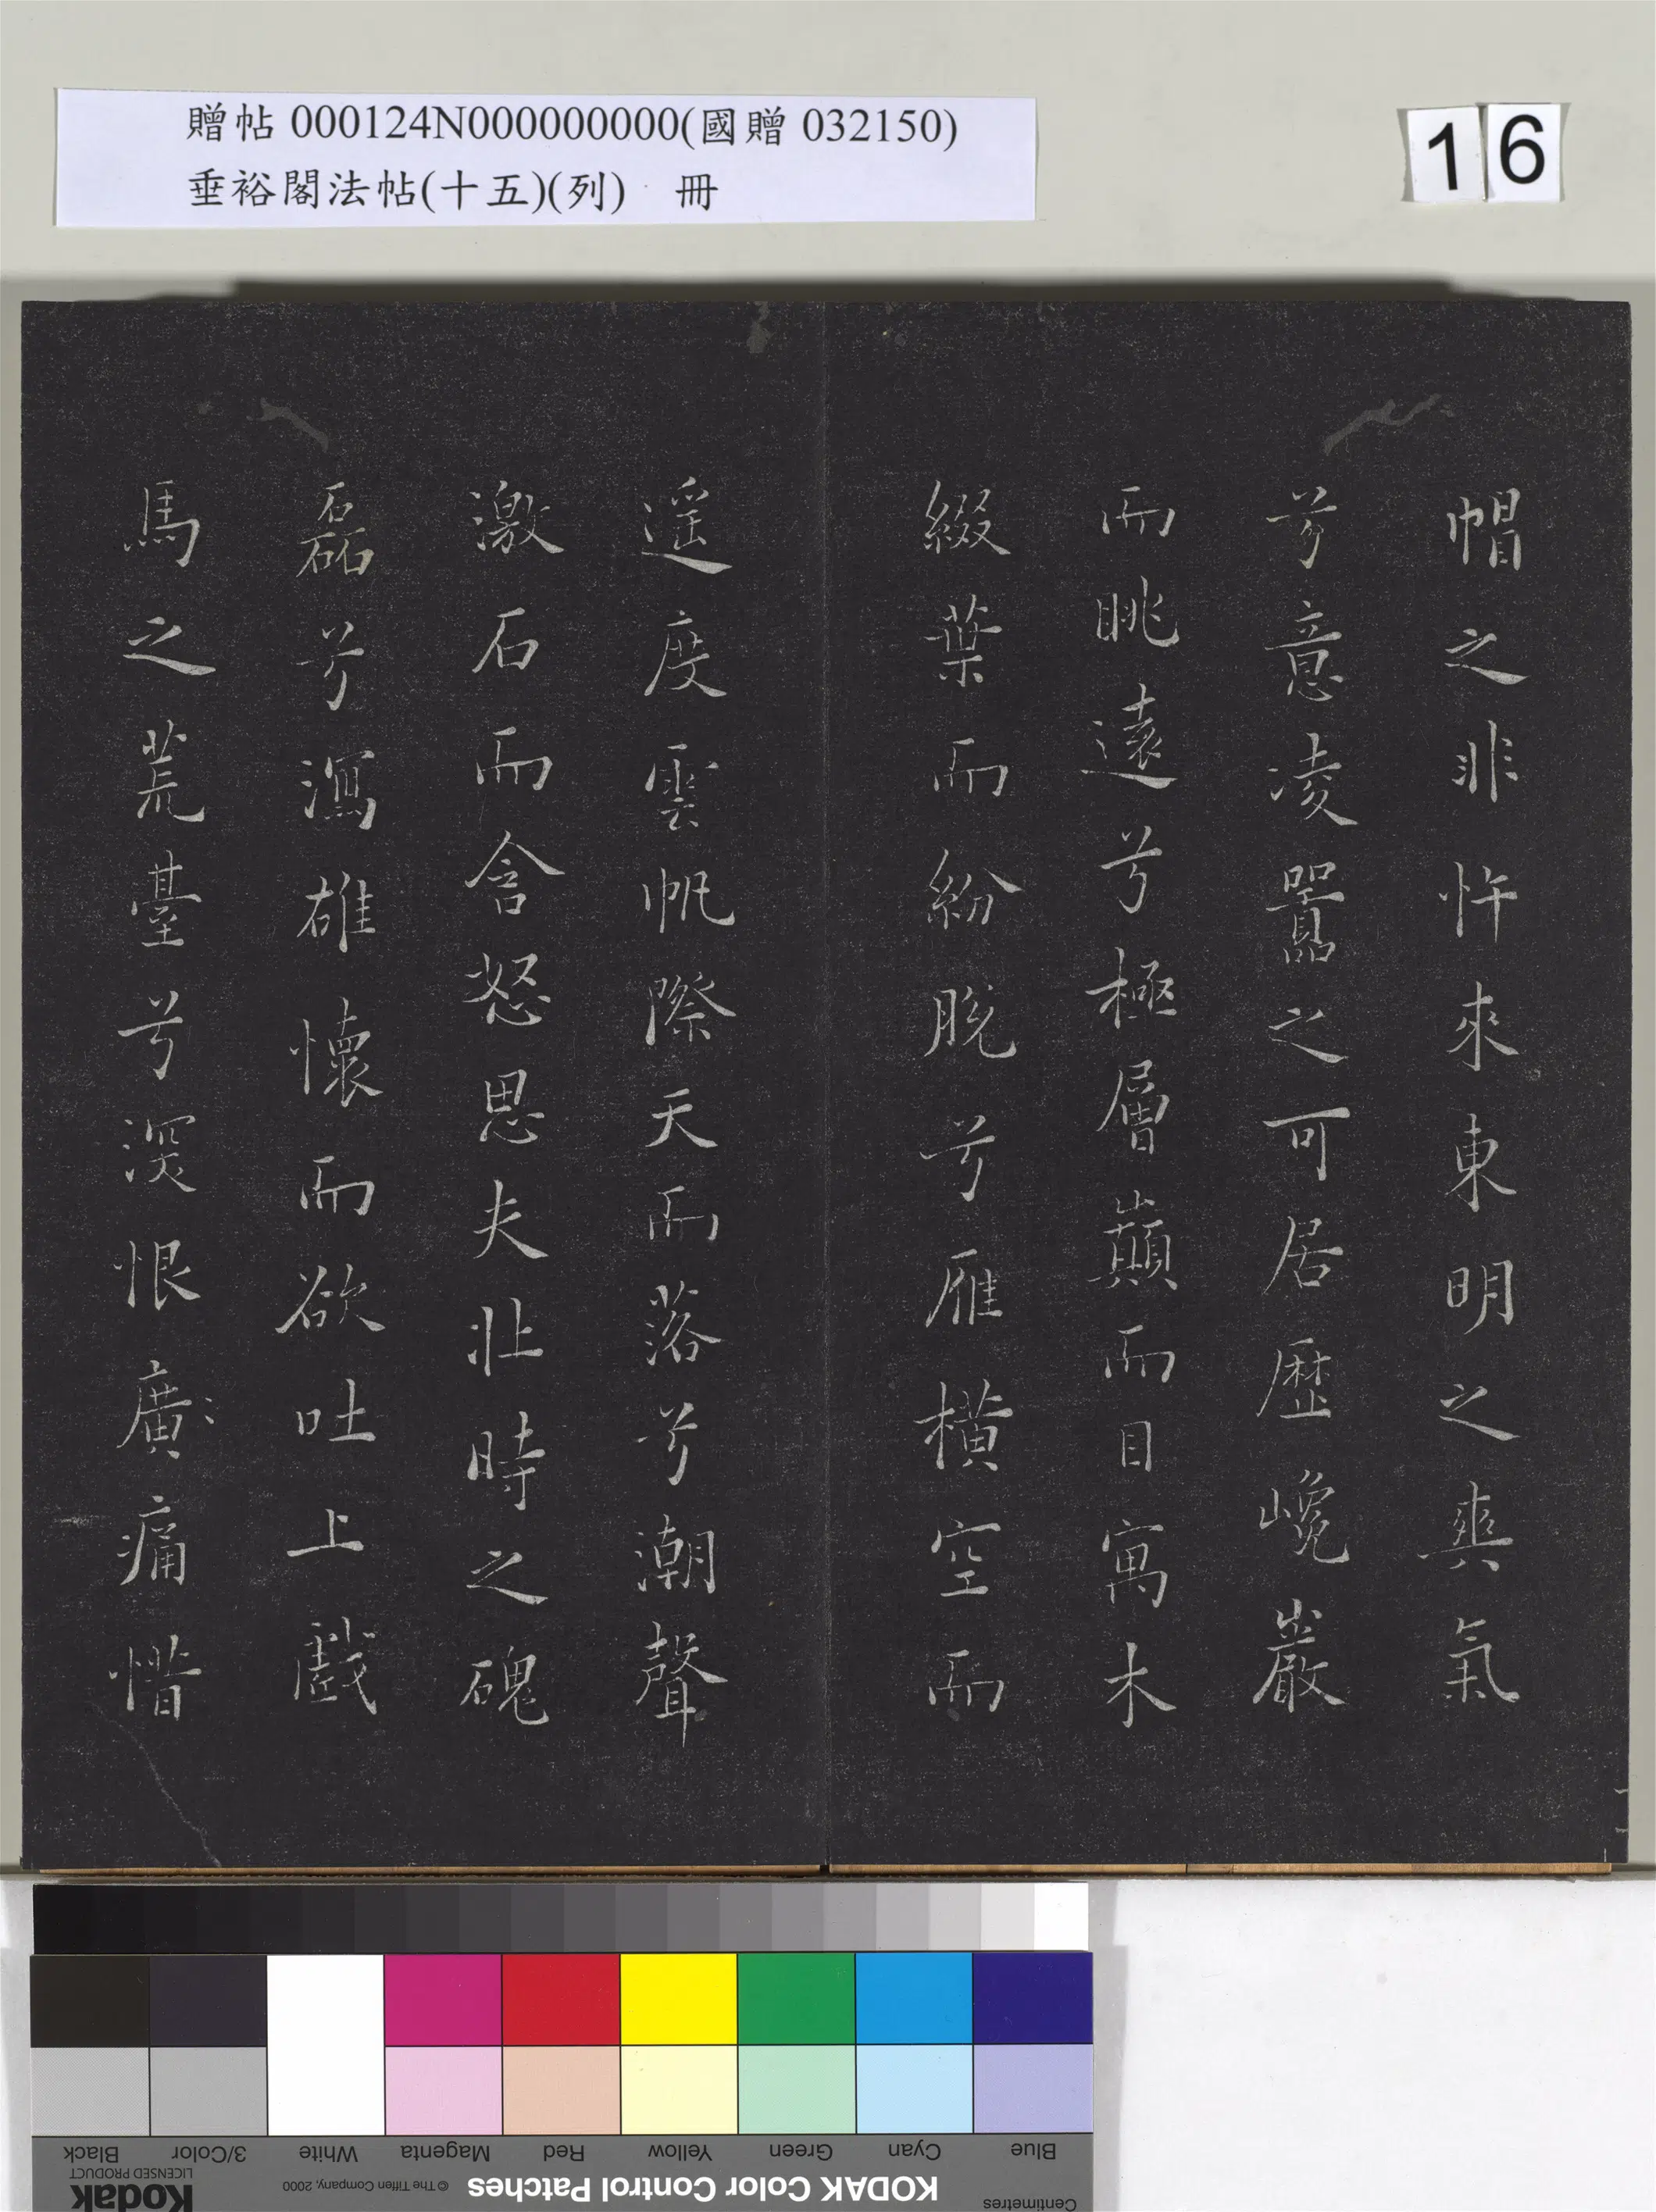 贈帖 000124N000000000(國贈 032150)
垂裕閣法帖(十五)(列) 冊
16
帽之非忤來東明之爽氣
兮意凌囂之可居歷巉巖
而眺遠兮極層巔而目寓木
綴葉而紛脫兮雁橫空而
遥度雲帆際天而落兮潮聲
激石而含怒思夫壯時之磈
磊兮瀉雄懷而欲吐上戲
馬之荒臺兮深恨廣痛惜
Black
3/Color
White
Magenta
Red
Yellow
Green
Cyan
Blue
Kodak
LICENSED PRODUCT
© The Tiffen Company, 2000
KODAK Color Control Patches
Centimetres